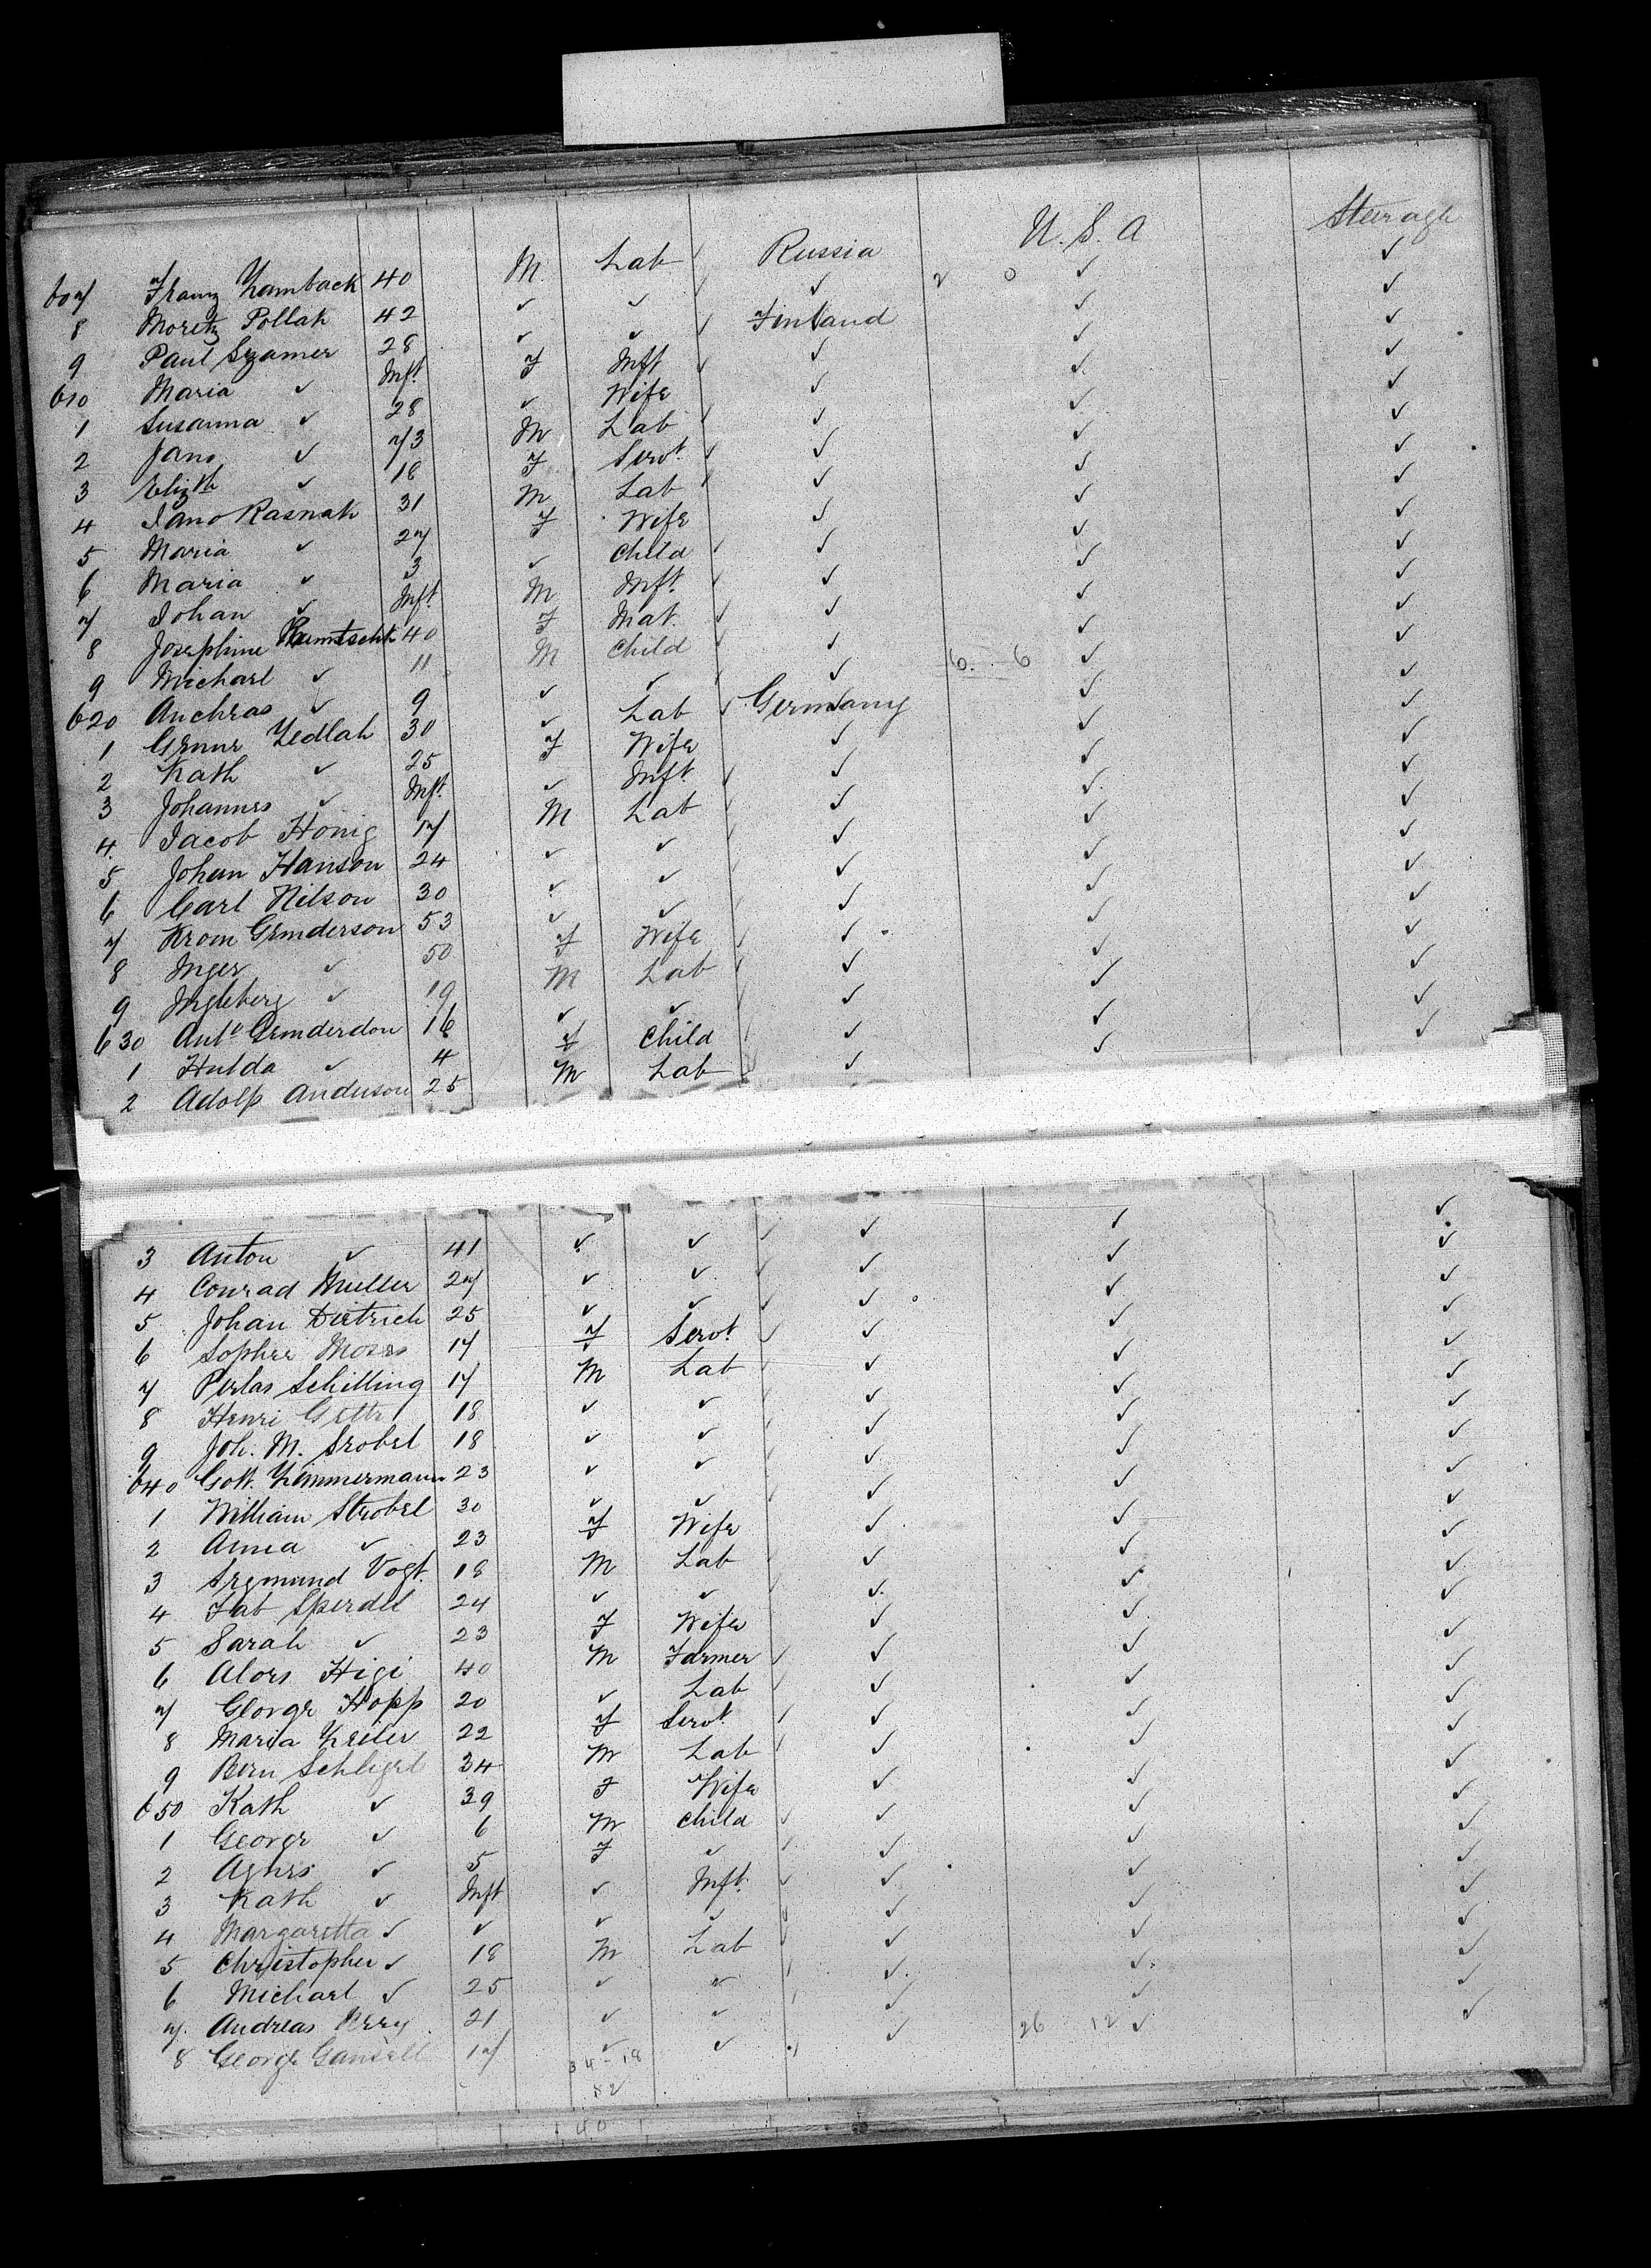 607 Franz Zamback 40 M Lab Russia U.S.A Steerage
8 Moretz Pollak 42 ✓ ✓ ✓ 2 0 ✓ ✓
9 Paul Szamer 28 ✓ ✓ Finland ✓ ✓
610 Maria ✓ Inft F Inft ✓ ✓ ✓
1 Susanna ✓ 28 ✓ Wife ✓ ✓ ✓
2 Jano ✓ 73 M Lab ✓ ✓ ✓
3 Elizth ✓ 18 F Servt ✓ ✓ ✓
4 Jano Rasnak 31 M Lab ✓ ✓ ✓
5 Maria ✓ 27 F Wife ✓ ✓ ✓
6 Maria ✓ 3 ✓ Child ✓ ✓ ✓
7 Johan ✓ Inft M Inft ✓ ✓ ✓
8 Josephine 40 F Mat. ✓ ✓ ✓
9 Michael ✓ 11 M Child ✓ ✓ ✓
620 Anchras ✓ 9 ✓ ✓ ✓ 6. 6 ✓ ✓
1 Zedlah 30 ✓ Lab Germany ✓ ✓
2 Kath ✓ 25 F Wife ✓ ✓ ✓
3 Johannes ✓ Inft ✓ Inft ✓ ✓ ✓
4 Jacob Honig 17 M Lab ✓ ✓ ✓
5 Johan Hanson 24 ✓ ✓ ✓ ✓ ✓
6 Carl Nilson 30 ✓ ✓ ✓ ✓ ✓
7 Krom Gunderson 53 ✓ ✓ ✓ ✓ ✓
8 Inger ✓ 50 F Wife ✓ ✓ ✓
9 Ingleberg ✓ 19 M Lab ✓ ✓ ✓
630 Ante Gunderdon 16 ✓ ✓ ✓ ✓ ✓
1 Hulda ✓ 4 F Child ✓ ✓ ✓
2 Adolp Anderson 25 M Lab ✓ ✓ ✓
3 Anton ✓ 41 ✓ ✓ ✓ ✓ ✓
4 Conrad Muller 27 ✓ ✓ ✓ ✓ ✓
5 Johan Dietrich 25 ✓ ✓ ✓ ✓ ✓
6 Sophie Moses 17 F Servt ✓ ✓ ✓
7 Perlas Schilling 17 M Lab ✓ ✓ ✓
8 Henri Gette 18 ✓ ✓ ✓ ✓ ✓
9 Joh. M. Srobel 18 ✓ ✓ ✓ ✓ ✓
640 Gott. Zimmermann 23 ✓ ✓ ✓ ✓ ✓
1 William Strobel 30 ✓ ✓ ✓ ✓ ✓
2 Anna ✓ 23 F Wife ✓ ✓ ✓
3 Segmund Vogt 18 M Lab ✓ ✓ ✓
4 Fab Sperdel 24 ✓ ✓ ✓ ✓ ✓
5 Sarah ✓ 23 F Wife ✓ ✓ ✓
6 Alois Higi 40 M Farmer ✓ ✓ ✓
7 George Hopp 20 ✓ Lab ✓ ✓ ✓
8 Maria Zeiler 22 F Servt ✓ ✓ ✓
9 Bern Schligel 34 M Lab ✓ ✓ ✓
650 Kath ✓ 39 F Wife ✓ ✓ ✓
1 George ✓ 6 M Child ✓ ✓ ✓
2 Agnes ✓ 5 F ✓ ✓ ✓ ✓
3 Kath ✓ Inft ✓ Inft ✓ ✓ ✓
4 Margaretta ✓ ✓ ✓ ✓ ✓ ✓ ✓
5 Christopher ✓ 18 M Lab ✓ ✓ ✓
6 Michael ✓ 25 ✓ ✓ ✓ ✓ ✓
7 Andreas 21 ✓ ✓ ✓ ✓ ✓
8 George 17 ✓ ✓ ✓ 26 12 ✓ ✓
34-18
52
40